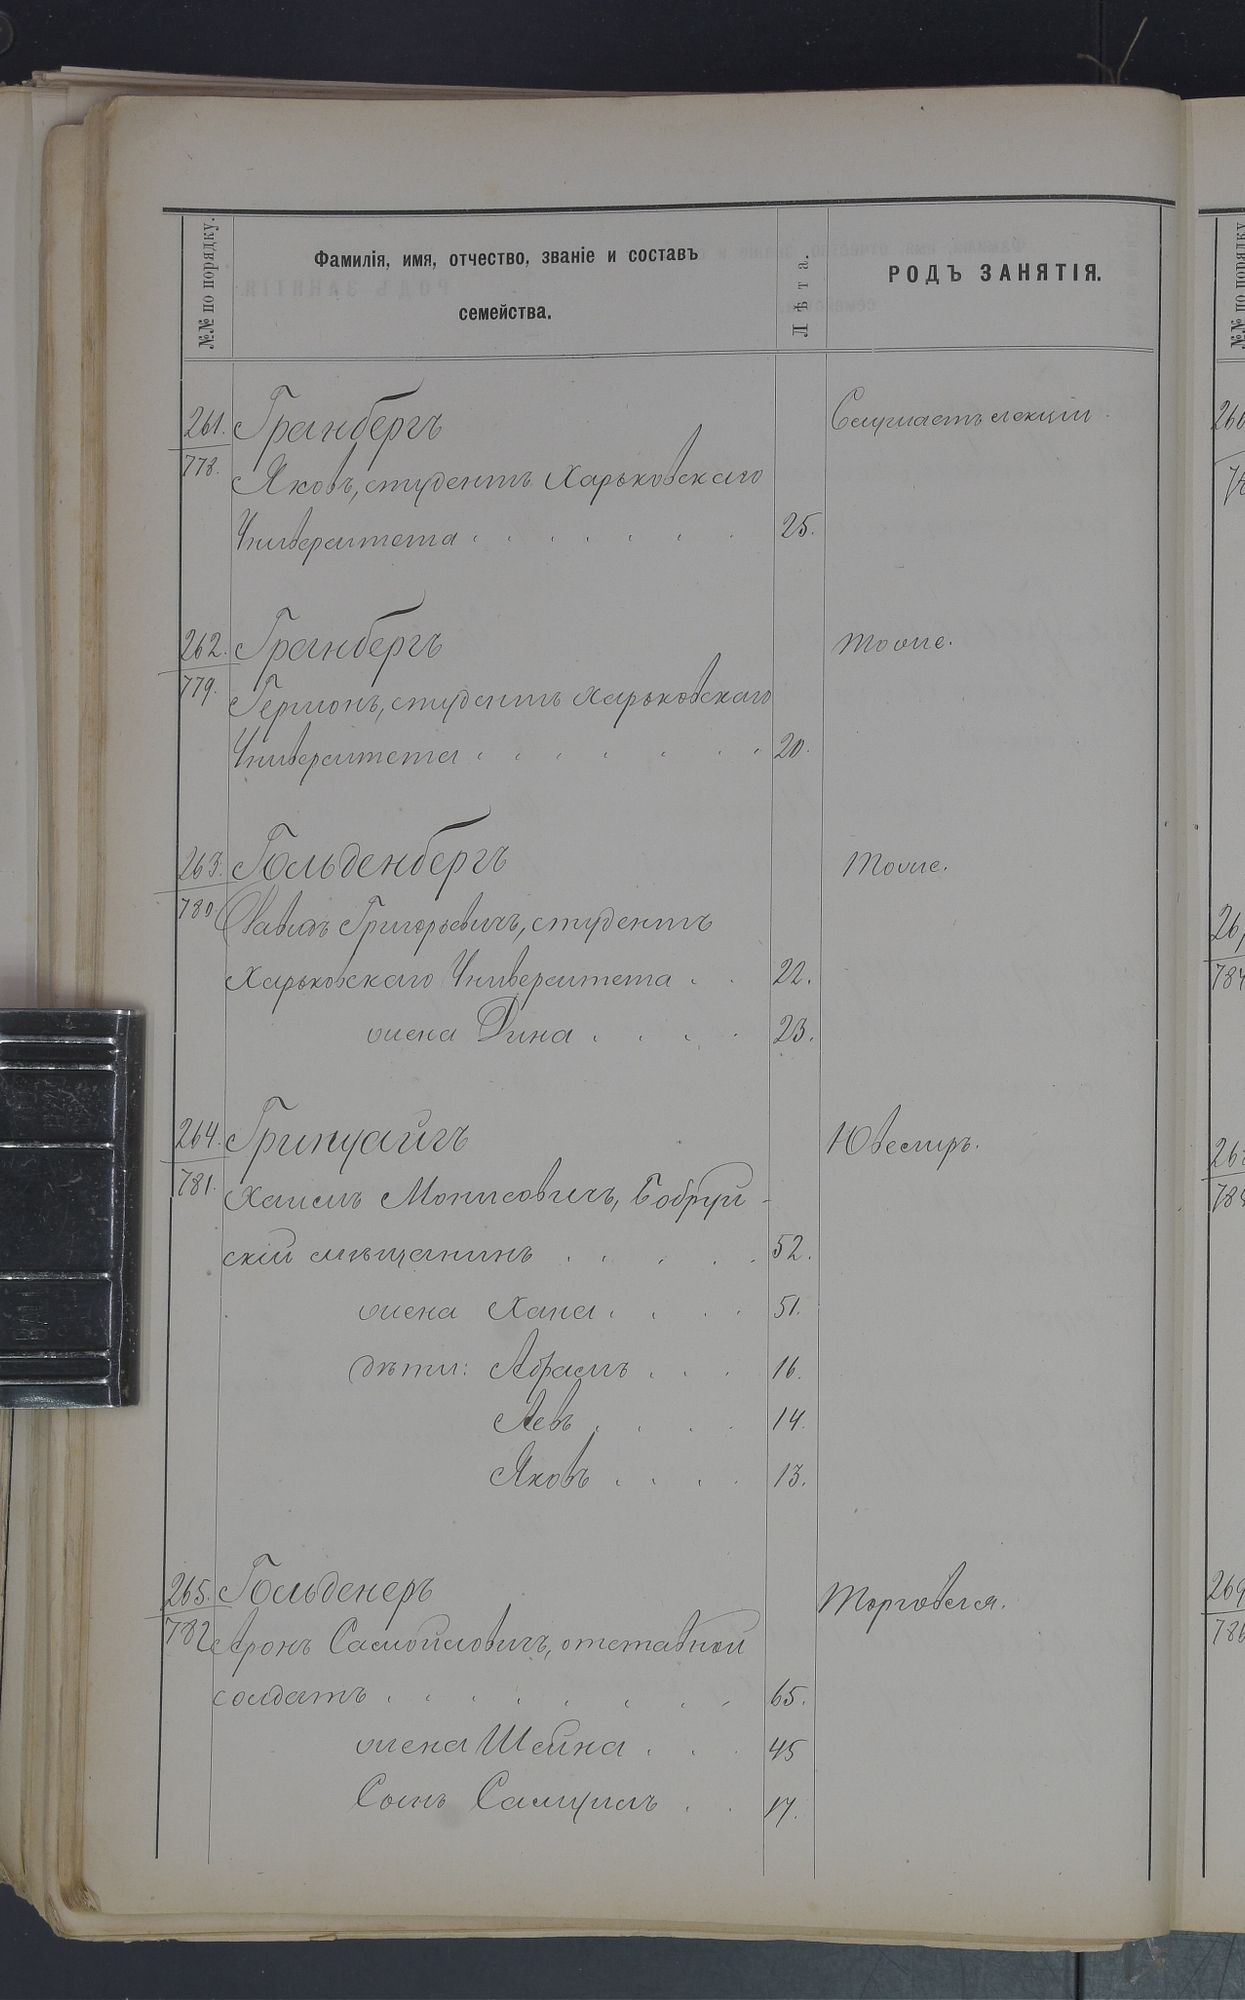 №№ по порядку.
Фамилія, имя, отчество, званіе и составъ
семейства.
Лѣта.
РОДЪ ЗАНЯТІЯ.
261. Гранбергъ Слушаетъ лекціи.
778. Яковъ, студентъ Харьковскаго
Университета 25.
262. Гранбергъ тоже.
779. студентъ Харьковскаго
Университета 20.
263. Гольденбергъ Тоже.
780 Давидъ Григорьевичъ, студентъ
Харьковскаго Университета 22.
жена Дина 23.
264. Ювелиръ.
781. Хаимъ Бобруй-
скій мѣщанинъ 52.
жена Хана 51.
дѣти: Абрамъ 16.
Левъ 14.
Яковъ 13.
265. Гольденеръ Торговля.
782 Аронъ Самойловичъ, отставной
солдатъ 65.
жена Шейна 45
Сынъ Самуилъ 17.
№№ по порядку
784
786